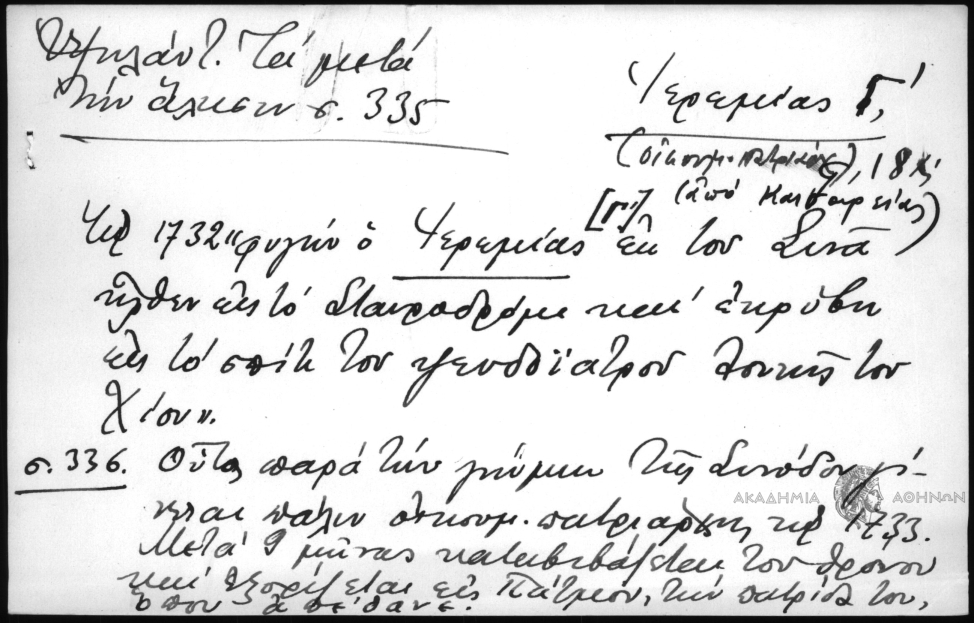 Ὑψηλάντ. Τά μετά
τήν ἅλωσιν σ. 335
Ἱερεμίας Γ΄,
(οἰκουμ. πατριάρχης), 18
[Γ΄] (ἀπό Καισαρείας)
Τῷ 1732 "φυγών ὁ Ἱερεμίας ἐκ τοῦ Σινᾶ
ἦλθεν εἰς τό Σταυροδρόμι καί ἐκρύβη
εἰς τό σπίτι τοῦ ψευδοϊατροῦ τοῦ
Χίου".
σ. 336. Οὗτος παρά τήν γνώμην τῆς Συνόδου γί-
νεται πάλιν οἰκουμ. πατριάρχης τῷ 1733.
Μετά 9 μῆνας καταβιβάζεται τοῦ θρόνου
καί ἐξορίζεται εἰς Πάτμον, τήν πατρίδα του,
ὅπου ἀπέθανε.
ΑΚΑΔΗΜΙΑ ΑΘΗΝΩΝ